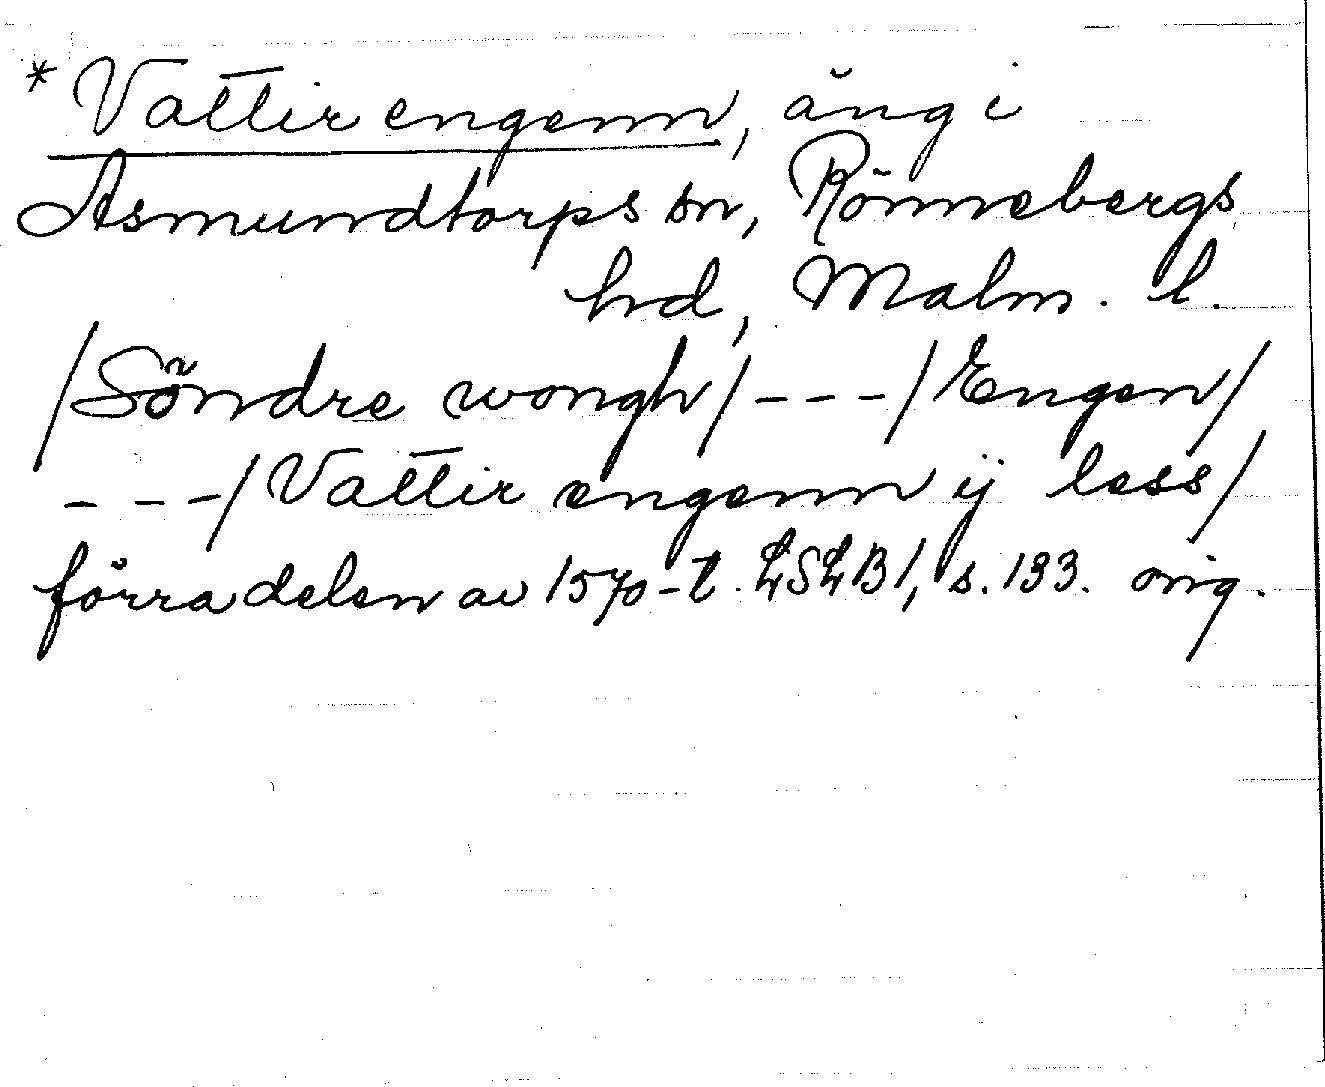 *Vattir engenn, äng i
Asmundtorps sn, Rönnebergs
hd, Malm. l.
/Söndre wongh/ --- /Engen/
---/Vattir engenn ij less/
förra delen av 1570-t. LSLB1, s. 133. orig.